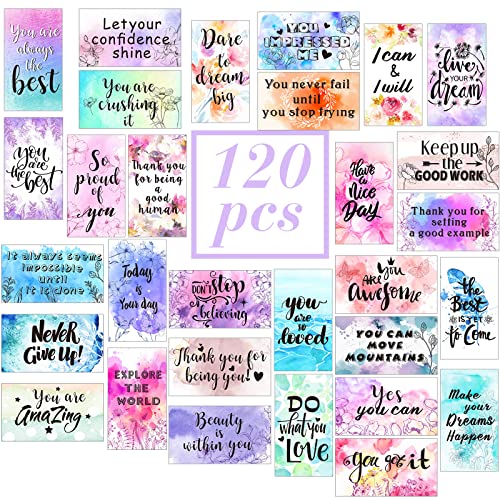 You are
always the
best
Let your
confidence
shine
You are
crushing
it
Dare
to
dream
big
YOU
IMPRESSED
ME
You never fail
until
you stop trying
I can
&
I will
live
YOUR
dream
you
are the
best
So
proud of
you
Thank you
for being
a good
human
120
pcs
Have
a
Nice
Day
Keep up
the
GOOD WORK
Thank you for
setting
a good example
It always seems
impossible
until
it is done
Today
is
Your day
DON'T stop
believing
you
are so
loved
YOU
ARE
Awesome
the
Best
IS YET
to
Come
NEVER
Give up!
EXPLORE
THE
WORLD
Thank you for
being you!
YOU CAN
MOVE
MOUNTAINS
You are
AMAZING
Beauty
is
within you
DO
what you
LOVE
Yes
you can
you got it
Make
your
Dreams
Happen